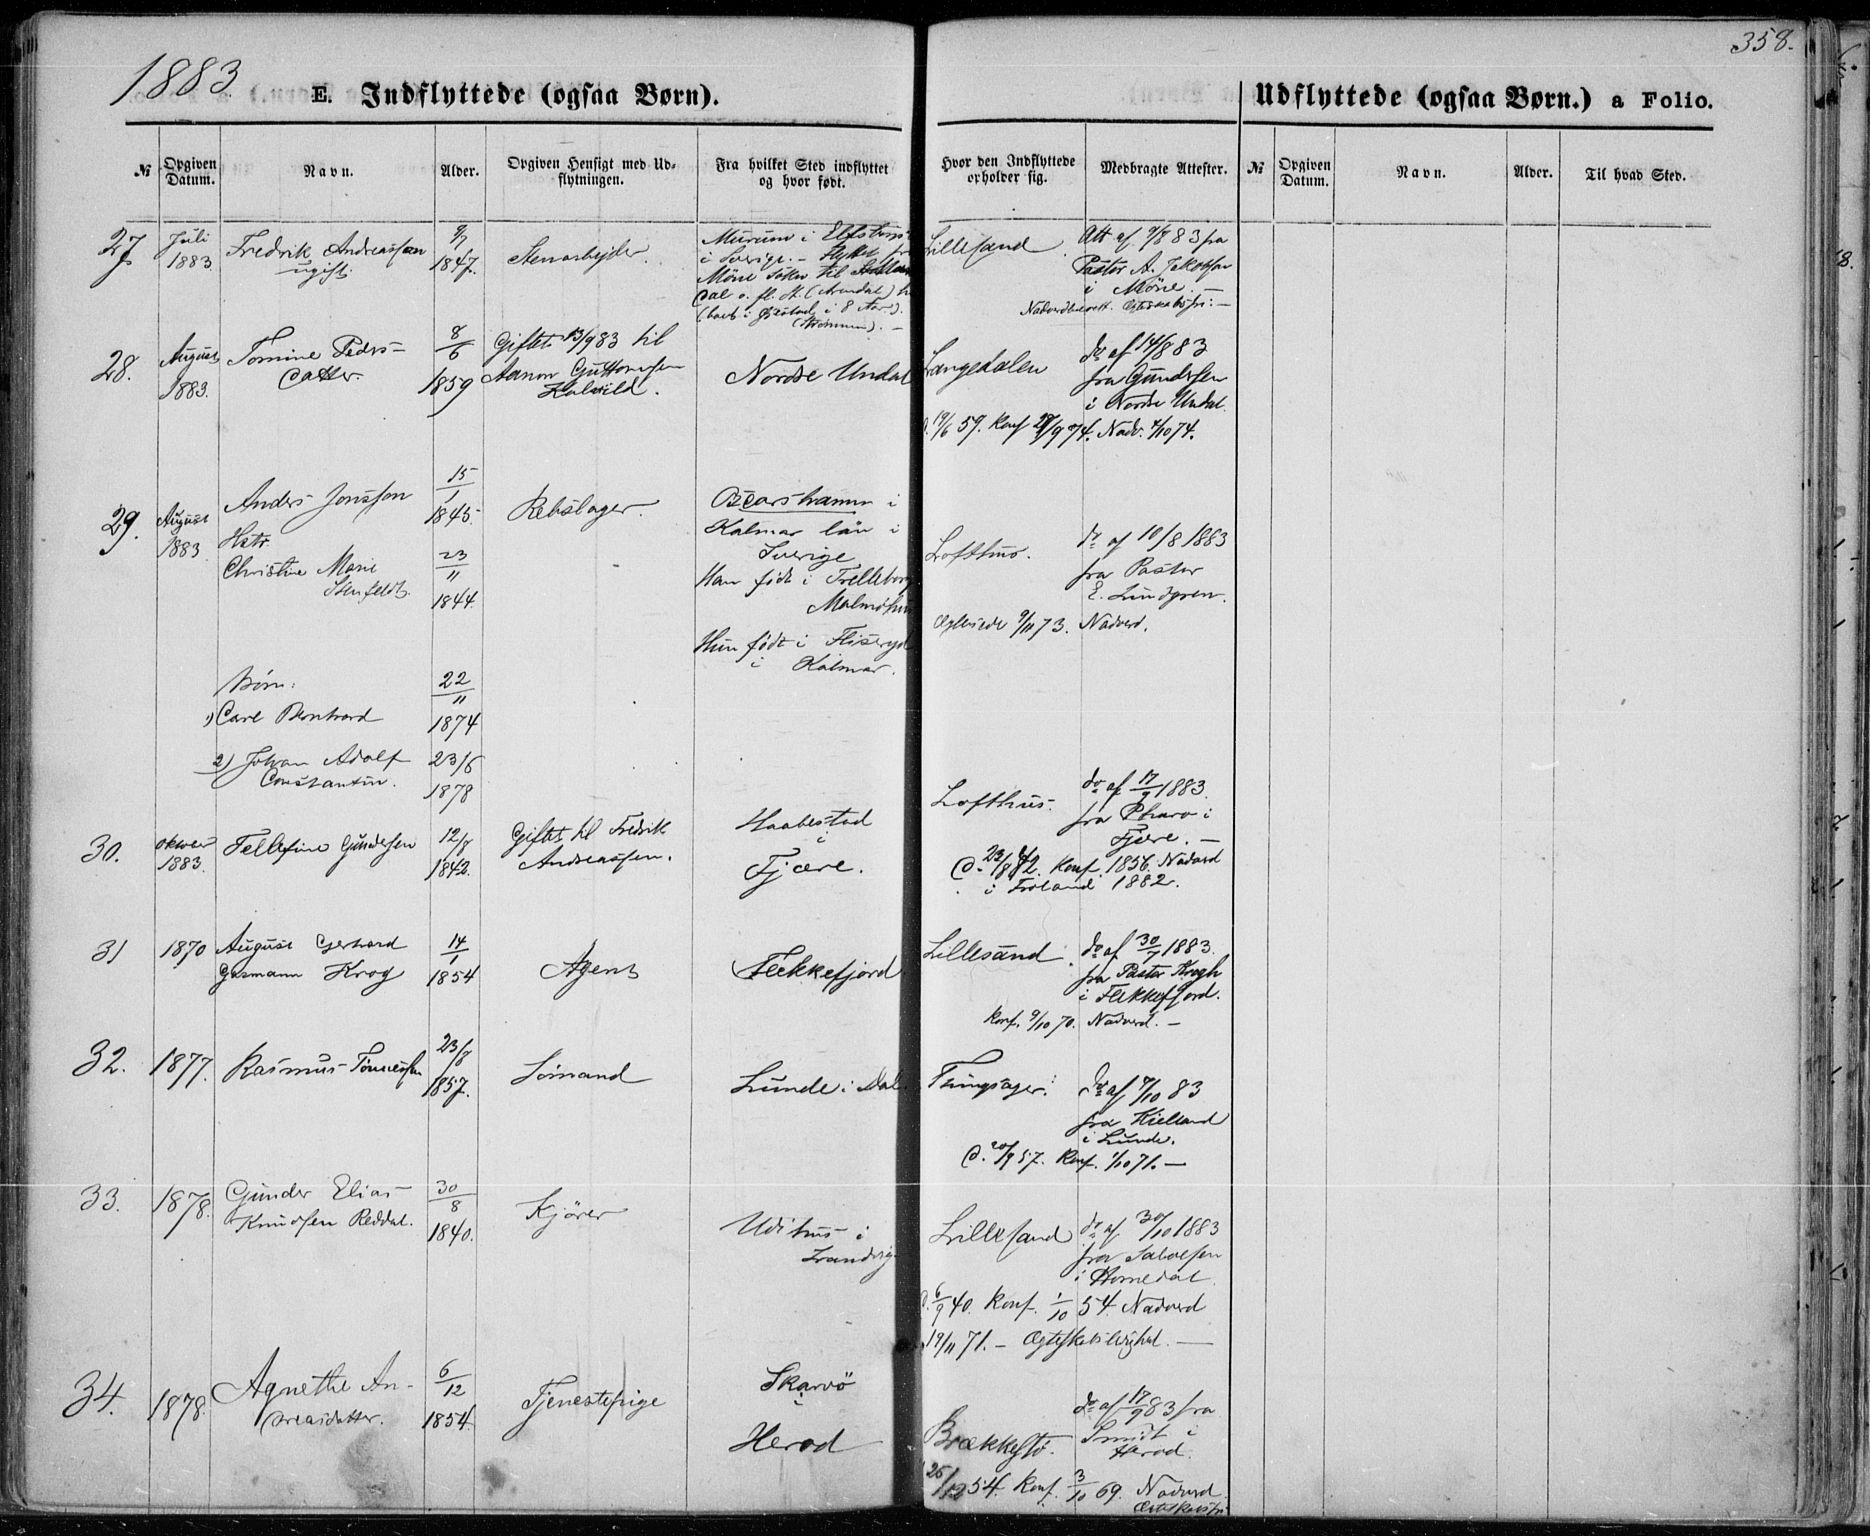 1883
358.
E. Indflyttede (ogsaa Børn).
Udflyttede (ogsaa Børn.) a Folio.
№
Opgiven Datum.
Navn.
Alder.
Opgiven Hensigt med Udflytningen.
Fra hvilket Sted indflyttet og hvor født.
Hvor den Indflyttede opholder sig.
Medbragte Attester.
№
Opgiven Datum.
Navn.
Alder.
Til hvad Sted.
27
Juli
1883
Fredrik Andreassen
ugift.
9/7
1847.
Stenarbejder.
Murum i Elfsborgs
i Sverige.
Möne
(Arendal)
i 8 Aar).
Lillesand
Att af 9/8 83 fra
Pastor A. Jakobson
i Möne. —
28.
August
1883.
Tomine Peders-
datter.
8/6
1859
Giftet 13/9 83 til
Aanon Guttormsen
Kalvild.
Nordre Undal
Langedalen
do af 14/8 83
fra Gundersen
i Nordre Undal.
19/6 59. Konf 9/74. Nadv. 4/10 74.
29.
August
1883
Anders Jonsson
Hstr
Christine Marie
Stenfeldt.
15/1
1845.
23/11
1844.
Rebslager.
Oscarshamn i
Kalmar län i
Sverige
Han født i Trelleborg
Malmöhus
Hun født i Fliseryd
i Kalmar.
Lofthus.
do af 10/8 1883
fra Pastor
E. Lundgren.
Ægteviede 9/11 73. Nadverd.
Børn:
1) Carl Bernhard
22/11
1874
2) Johan Adolf
Constantin.
23/6
1878
30.
oktober
1883.
Tellefine Gundersen
12/8
1842.
Giftet til Fredrik
Andreassen.
Haabestad
i
Fjære.
Lofthus.
do af 17/9 1883.
fra Pharo i
Fjære. —
D. 23/8 42. Konf. 1856. Nadverd
i Froland 1882.
31
1870
August Gerhard
Gasmann Krog
14/1
1854
Agent
Flekkefjord
Lillesand
do af 30/7 1883.
fra Pastor Krogh
i Flekkefjord.
Konf. 9/10 70. Nadverd. —
32.
1877.
Rasmus Tønnessen
23/8
1857.
Sømand
Lunde i Dal.
Tingsager.
do af 7/10 83
fra Kielland
i Lunde.
D. 20/9 57. Konf. 1/10 71. —
33.
1878.
Gunder Elias
Knudsen Reddal.
30/8
1840.
Kjører
Udihus i
Landvig
Lillesand
do af 30/10 1883
fra Salvesen
i Homedal.
6/9 40. Konf. 1/10 54. Nadverd
19/11 71. — Ægteskabsledighed. —
34.
1878.
Agnethe An-
dreasdatter.
6/12
1854.
Tjenestepige
Skarvö
i
Herod
Brækkestø.
do af 17/9 83 fra
Smidt i
Herod.
26/12 54. Konf. 3/10 69. Nadverd